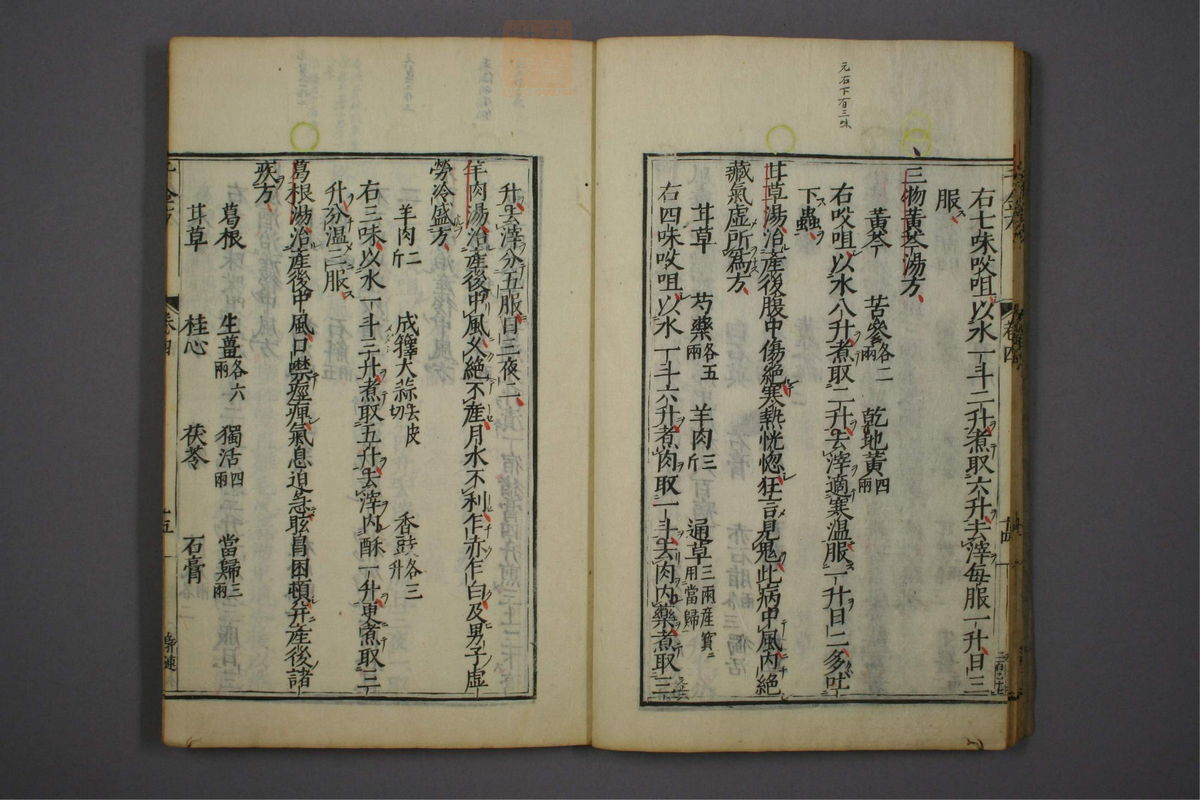 元右下有三味
右七味㕮咀以水一斗二升煮取六升去滓每服一升日三
服
三物黃芩湯方
黃芩 苦參各二兩 乾地黃四兩
右㕮咀以水八升煮取二升去滓適寒溫服一升日二多吐
下蟲
甘草湯治產後腹中傷絕寒熱恍惚狂言見鬼此病中風內絕
藏氣虛所爲方
甘草 芍藥各五兩 羊肉三斤 通草三兩產寶用當歸
右四味㕮咀以水一斗六升煮肉取一斗去肉內藥煮取三
升去滓分五服日三夜二
羊肉湯治產後中風久絕不產月水不利乍赤乍白及男子虛
勞冷盛方
羊肉二斤 成擇大蒜去皮切 香豉各三升
右三味以水一斗三升煮取五升去滓內酥一升更煮取三
升分溫三服
葛根湯治產後中風口噤痙痺氣息迫急眩冒困頓幷產後諸
疾方
葛根 生薑各六兩 獨活四兩 當歸三兩
甘草 桂心 茯苓 石膏
千金方
卷四